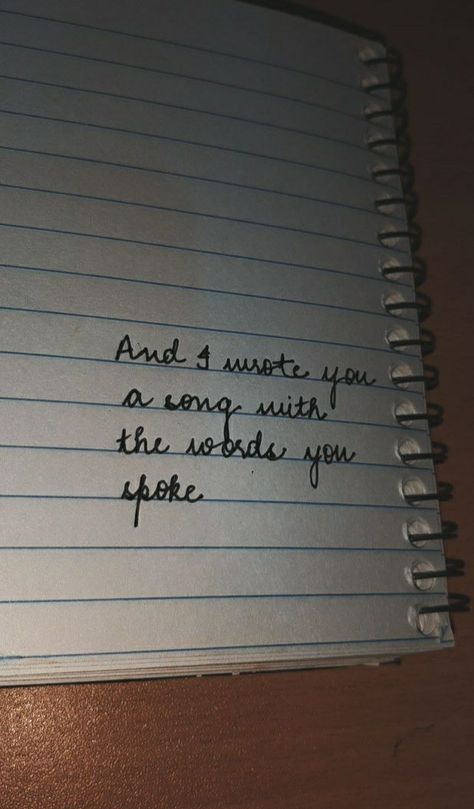 And I wrote you
a song with
the words you
spoke